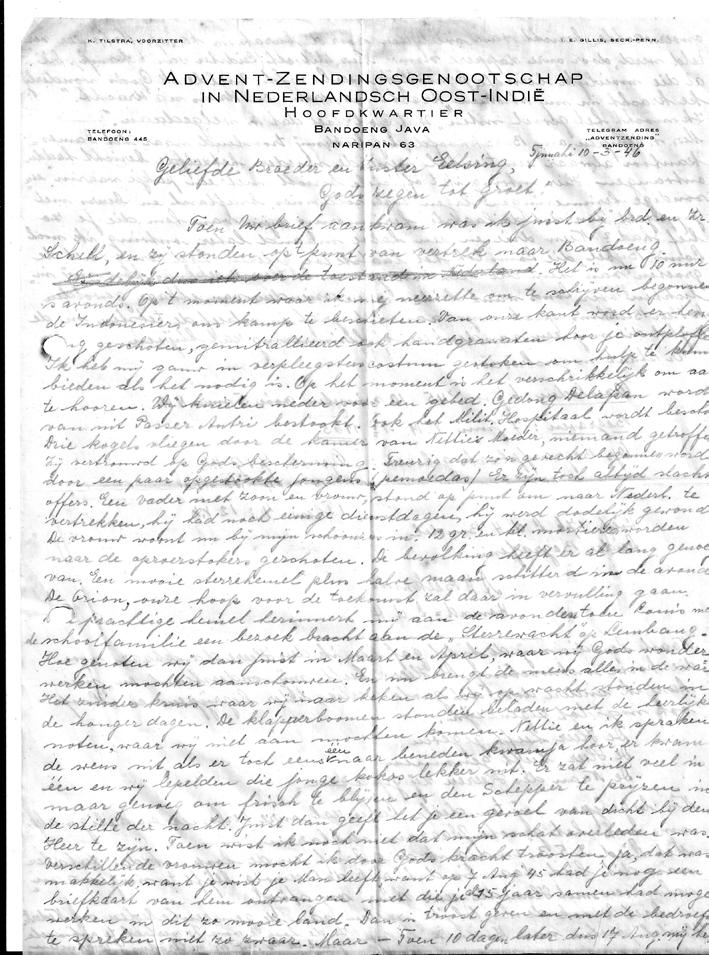 K. TILSTRA, VOORZITTER
I. E. GILLIS, SECR.-PENN.
ADVENT-ZENDINGSGENOOTSCHAP
IN NEDERLANDSCH OOST-INDIË
HOOFDKWARTIER
BANDOENG JAVA
NARIPAN 63
TELEFOON:
BANDOENG 445
TELEGRAM ADRES
„ADVENTZENDING"
BANDOENG
Tjimahi 10-3-46
Geliefde Broeder en Zuster Eelsing,
Gods zegen tot groet."
Toen Uw brief aankwam was ik juist bij brd. en Zr.
Schell, en zij stonden op 't punt van vertrek naar Bandoeng.
over de toestand in Nederland. Het is nu 10 uur
s avonds. Op 't moment waar ik mij neerzette om te schrijven begonnen
de Indonesiers ons kamp te beschieten. Van onze kant word er
geschoten, gemitrailleerd ook handgranaten hoor je
Ik heb mij gauw in verpleegsterscostum gestoken om hulp te
bieden als het nodig is. Op het moment is het verschrikkelijk om aan
te hooren. Wij knielen neder voor een gebed. Gedong Delapan word
van uit Passer Antri bestookt. Ook het Milit. Hospitaal wordt
Drie kogels vliegen door de kamer van Nettie's Moeder, niemand
Zij vertrouwd op Gods bescherming. Treurig dat zo'n gevecht begonnen word
door een paar opgestookte jongens (pemoedas) Er zijn toch altijd
offers. Een vader met zoon en vrouw, stond op punt om naar Nederl. te
vertrekken, hij had noch einige dienstdagen, hij werd dodelijk gewond
De vrouw woont nu bij mijn in. 12 gr. en kl. mortiere worden
naar de oproerstokers geschoten. De bevolking heeft er al lang genoeg
van. Een mooie sterrehemel plus halve maan schitterd in de avond
De Orion, onze hoop voor de toekomst zal daar in vervulling gaan.
prachtige hemel herinnert mij aan de avonden toen Louis met
de schoolfamilie een bezoek bracht aan de „Sterrewacht" op Lembang.
Hoe genoten wij dan juist in Maart en April, waar wij Gods wonder
werken mochten aanschouwen. En nu brengt de mens alles in de war
Het zuider kruis, waar wij naar keken als wij op wacht stonden in
de honger dagen. De klapperboomen stonden beladen met de heerlijke
noten, waar wij niet aan mochten komen. Nettie en ik spraken
de wens uit als er toch eens een naar beneden kwam, ja hoor er kwam
één en wij lepelden die jonge kokos lekker uit. Er zat niet veel in
maar genoeg om frisch te blijven en den Schepper te prijzen in
de stilte der nacht. Juist dan geeft het je een gevoel van dicht bij den
Heer te zijn. Toen wist ik noch niet dat mijn schat overleden was.
Verschillende vrouwen mocht ik door Gods kracht troosten ja, dat was
makkelijk, want je wist je Man leeft, want op 7 Aug 45 had je nog een
briefkaart van hem ontvangen met die je 15 jaar samen had mogen
werken in dit zo mooie land. Dan is troost geven en met de bedroefden
te spreken niet zo zwaar. Maar — Toen 10 dagen later dus 17 Aug. mij